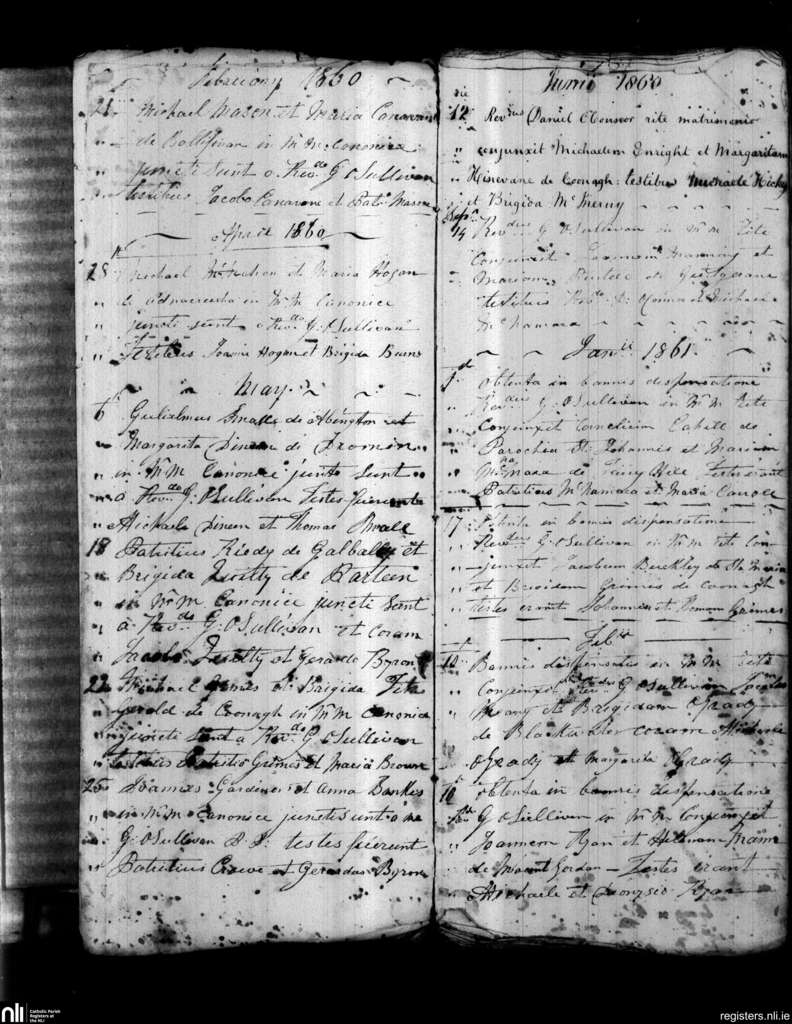 Februarij 1860
21 Michael Mason et Maria Canavan
" de Ballysivan in Mm Canonice
" juncti sunt a Revdo G OSullivan
testibus Jacobo Canavane et Patr Mason
April 1860
28 Michael McMahon et Maria Hogan
" de in Mm Canonice
" juncti sunt a Revdo G. OSullivan
" Testibus Joanne Hogan et Brigida Burns
May
6 Gulialmus Small de Abington et
" Margarita Dineen de Dromin
" in Mm Canonice juncti Sunt
a Revdo G. OSullivan Testes fuerunt
" Michaele Dineen et Thomas Small
18 Patritius Riedy de Galbally et
" Brigida de
" in Mm Canonice juncti Sunt
" a Revdo G. OSullivan et Coram
" Jacobo et Gerardo Byron
22 Michael Grimes et Brigida Fitz
" gerold de Coonagh in Mm Canonice
" juncti Sunt a Revdo G OSullivan
testibus Patritio Grimes et Maria Brown
25 Joannes Gardiner et Anna Bankes
" in Mm Canonice juncti sunt a me
" G. OSullivan P. P. testes fuerunt
" Patritius Crowe et Gerardus Byron
Junii 1860
die
12 Revdus Daniel OConnor rite matrimonio
" conjunxit Michaelem Enright et Margaritam
" Kinevane de Coonagh: testibus Michaele Hickey
" et Brigida McInerny
14 Revdus G OSullivan in Mm Rite
" Conjunxit Manning et
" Mariam de
" testibus Connor et Michaele
McNamara
Janii 1861
Obtenta in bannis dispensatione
" Revdus G. OSullivan in Mm Rite
" Conjunxit Cornelium Cahill de
" Parochia St. Johannis et Mariam
" McNamara de Fairy Hill Testes erant
" Patritius McNamara et Maria Carroll
17 Obtenta in bannis dispensatione
" Revdus G. OSullivan in Mm Rite Con
" junxit Jacobum Berekley de St. Maria
" et Brigidam Grimes de Coonagh
" testes erant Johannes et Grimes
Feb
10 Bannis dispensatis in Mm Rite
" Conjunxit Revdus G OSullivan
" et Brigidam OGrady
" de Blackwater coram Michaele
OGrady et Margarita OGrady
10 Obtenta in bannis dispensatione
" G OSullivan in Mm Conjunxit
" Joannem Ryan et
" de Mount Gordon – Testes erant
" Michaele et Dionysio Ryan
nli
Catholic Parish
Registers at
the NLI
registers.nli.ie